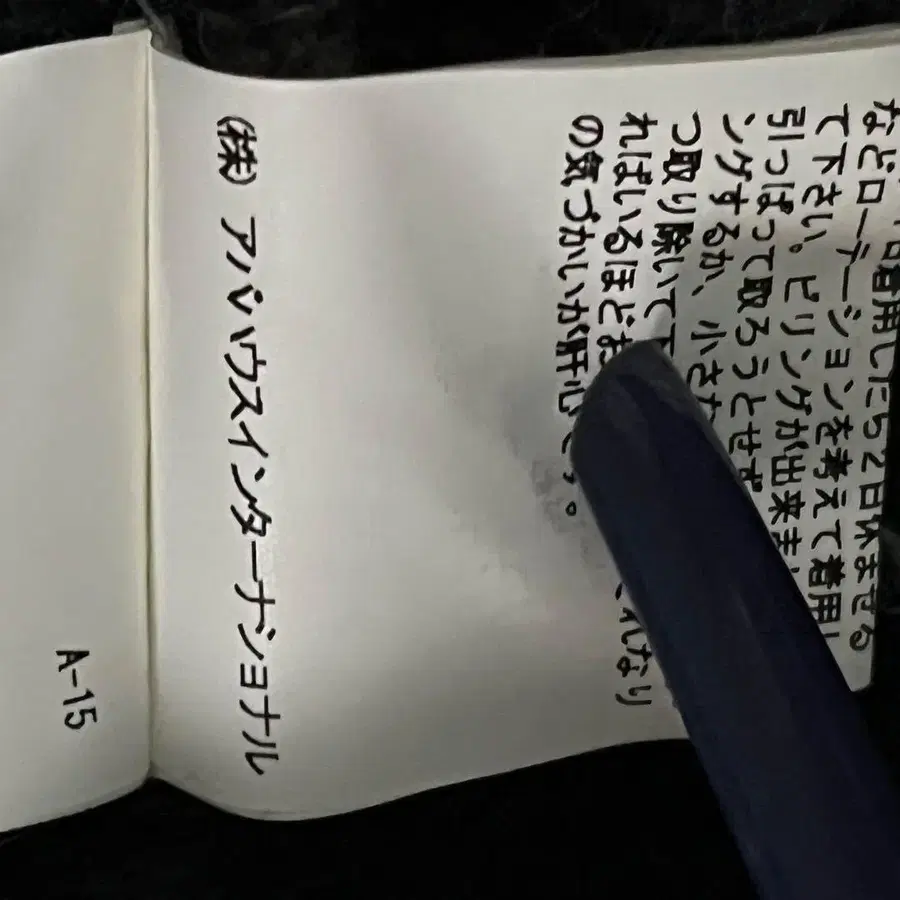 日着用したら2日休ませる
などローテーションを考えて着用し
て下さい。ピリングが出来ま
引っぱって取ろうとせず
ングするか、小さな
つ取り除いて下
ればいるほどお れなり
の気づかいが肝心 。
(株) アバハウスインターナショナル
A-15